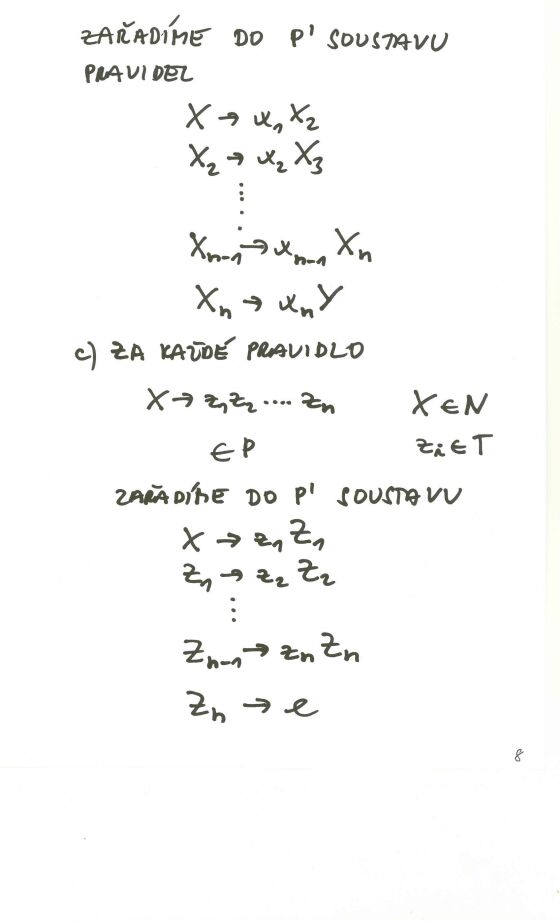 ZAŘADÍME DO P' SOUSTAVU
PRAVIDEL
X → x₁X₂
X₂ → x₂X₃
⋮
Xₙ₋₁ → xₙ₋₁Xₙ
Xₙ → xₙY
c) ZA KAŽDÉ PRAVIDLO
X → z₁z₂ .... zₙ X ∈ N
∈ P zᵢ ∈ T
ZAŘADÍME DO P' SOUSTAVU
X → z₁Z₁
Z₁ → z₂Z₂
⋮
Zₙ₋₁ → zₙZₙ
Zₙ → e
8